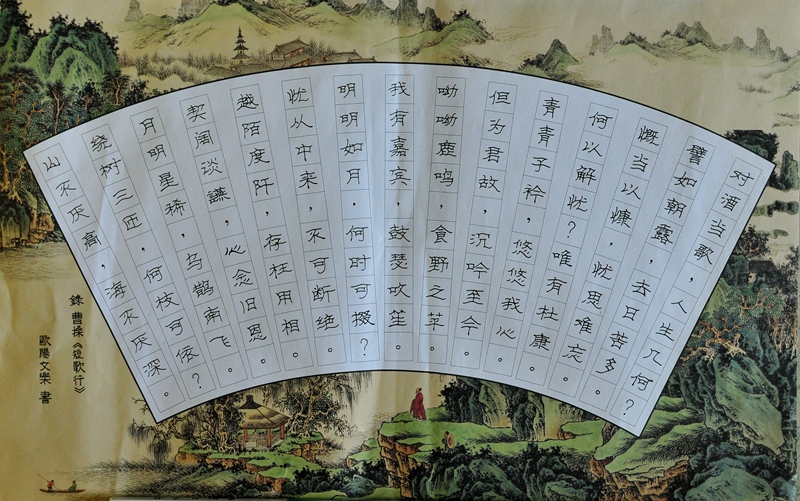 对酒当歌，人生几何？
譬如朝露，去日苦多。
慨当以慷，忧思难忘。
何以解忧？唯有杜康。
青青子衿，悠悠我心。
但为君故，沉吟至今。
呦呦鹿鸣，食野之苹。
我有嘉宾，鼓瑟吹笙。
明明如月，何时可掇？
忧从中来，不可断绝。
越陌度阡，存枉用相。
契阔谈讌，心念旧恩。
月明星稀，乌鹊南飞。
绕树三匝，何枝可依？
山不厌高，海不厌深。
錄曹操《短歌行》
歐陽文樂書